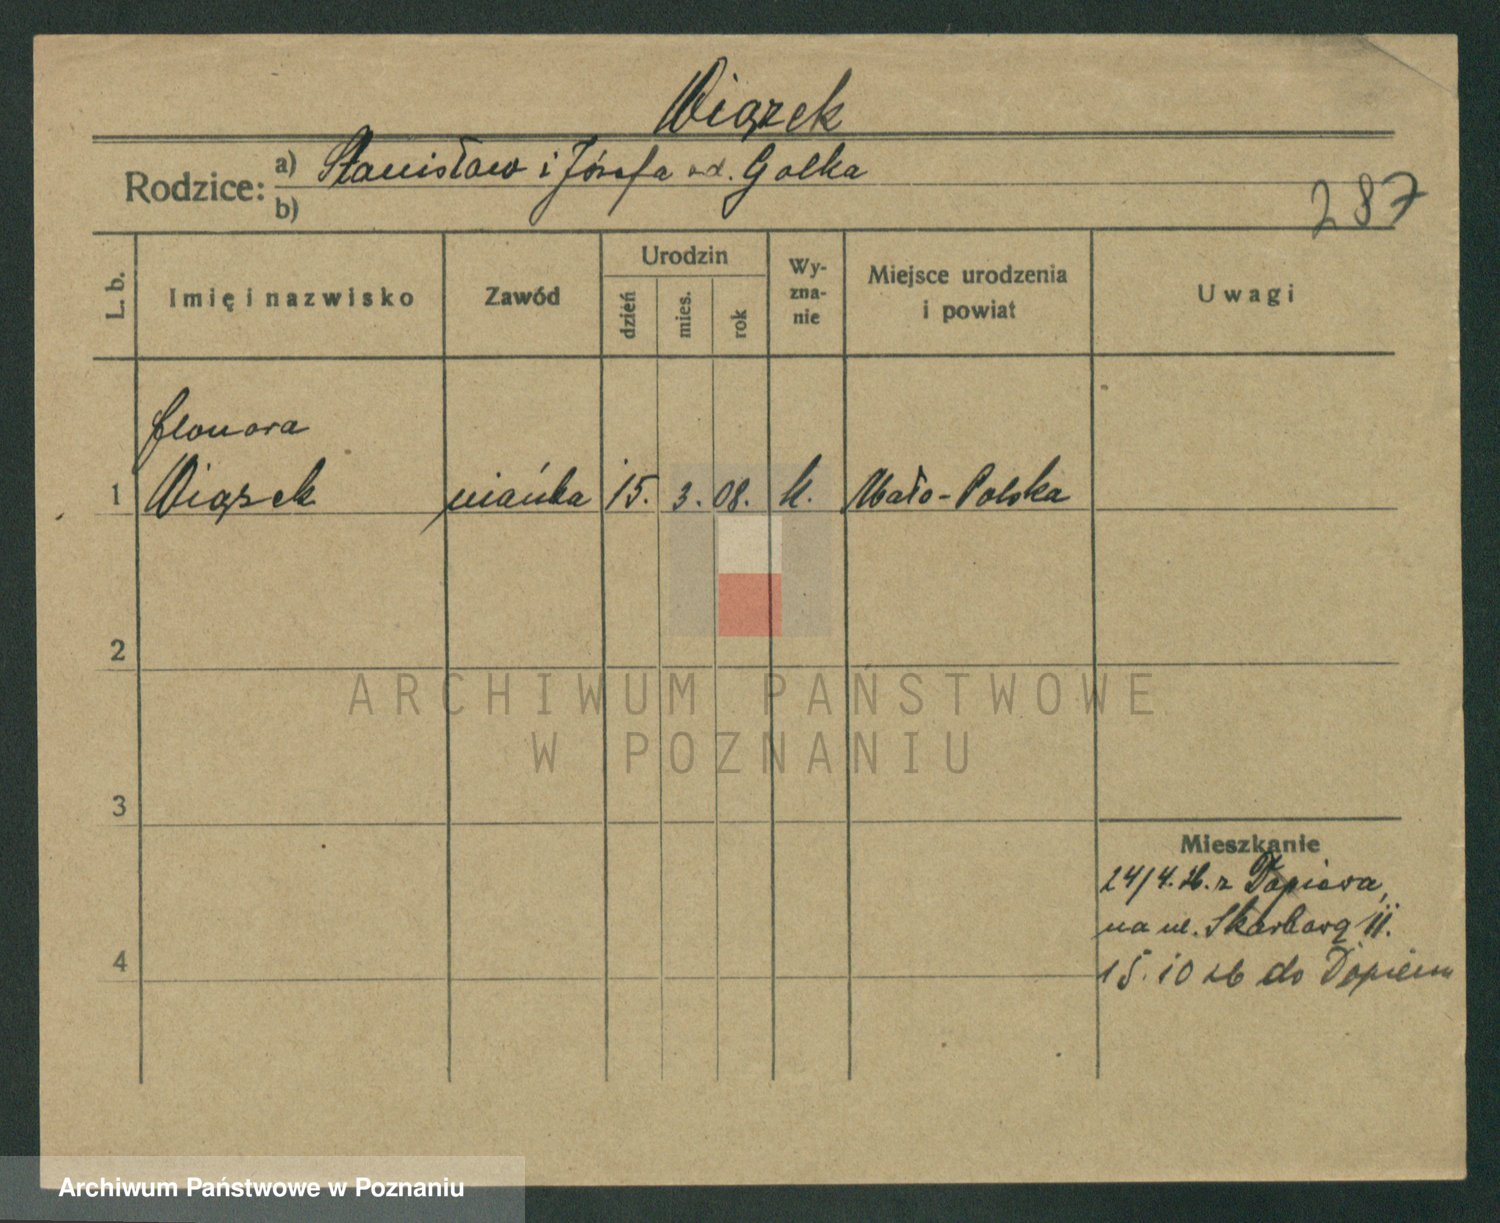 Wiązek
Rodzice: a) Stanisław i Józefa Golka
b)
287
L. b.
Imię i nazwisko
Zawód
Urodzin
dzień
mies.
rok
Wy-
zna-
nie
Miejsce urodzenia
i powiat
Uwagi
Eleonora
1 Wiązek niańka 15. 3. 08. k. Mało-Polska
2
3
4
ARCHIWUM PAŃSTWOWE
W POZNANIU
Mieszkanie
24/4.26. z Dopiewa,
na ul. Skarbową 11.
15.10 26 do Dopiewa
Archiwum Państwowe w Poznaniu